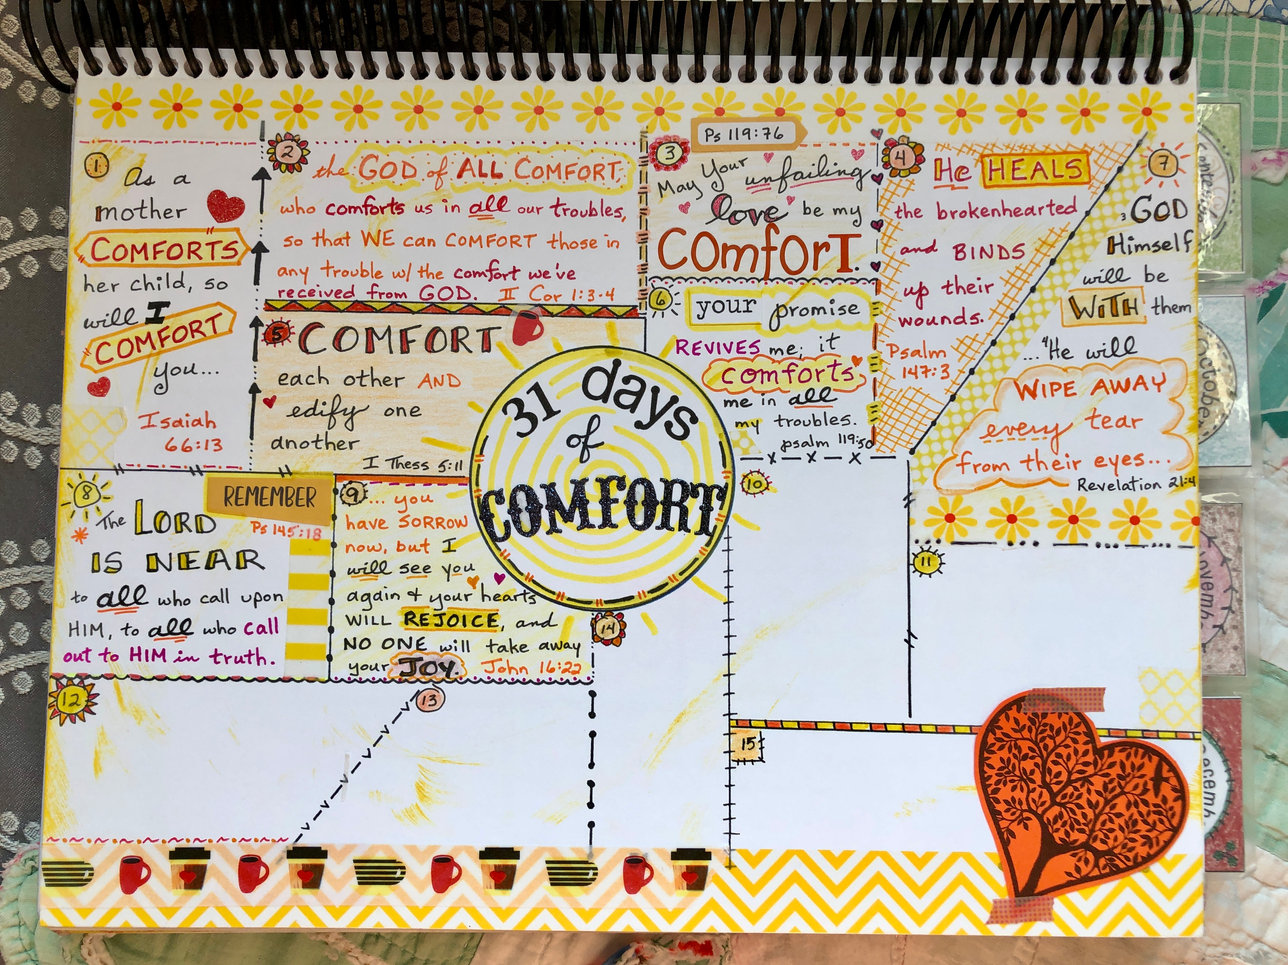 1
As a
mother
COMFORTS
her child, so
will I
COMFORT
you...
Isaiah
66:13
2
the GOD of ALL COMFORT,
who comforts us in all our troubles,
so that WE can COMFORT those in
any trouble w/ the comfort we've
received from GOD. II Cor 1:3-4
3
Ps 119:76
May Your unfailing
love be my
ComforT.
4
He HEALS
the brokenhearted
and BINDS
up their
wounds.
Psalm
147:3
5
COMFORT
each other AND
edify one
another
I Thess 5:11
6
your promise
REVIVES me; it
comforts
me in all
my troubles.
psalm 119:50
7
GOD
Himself
will be
WITH them
..."He will
WIPE AWAY
every tear
from their eyes...
Revelation 21:4
31 days
of
COMFORT
8
REMEMBER
The LORD
Ps 145:18
IS NEAR
to all who call upon
HIM, to all who call
out to HIM in truth.
9
... you
have SORROW
now, but I
will see you
again & your hearts
WILL REJOICE, and
NO ONE will take away
your JOY. John 16:22
10
11
12
13
14
15